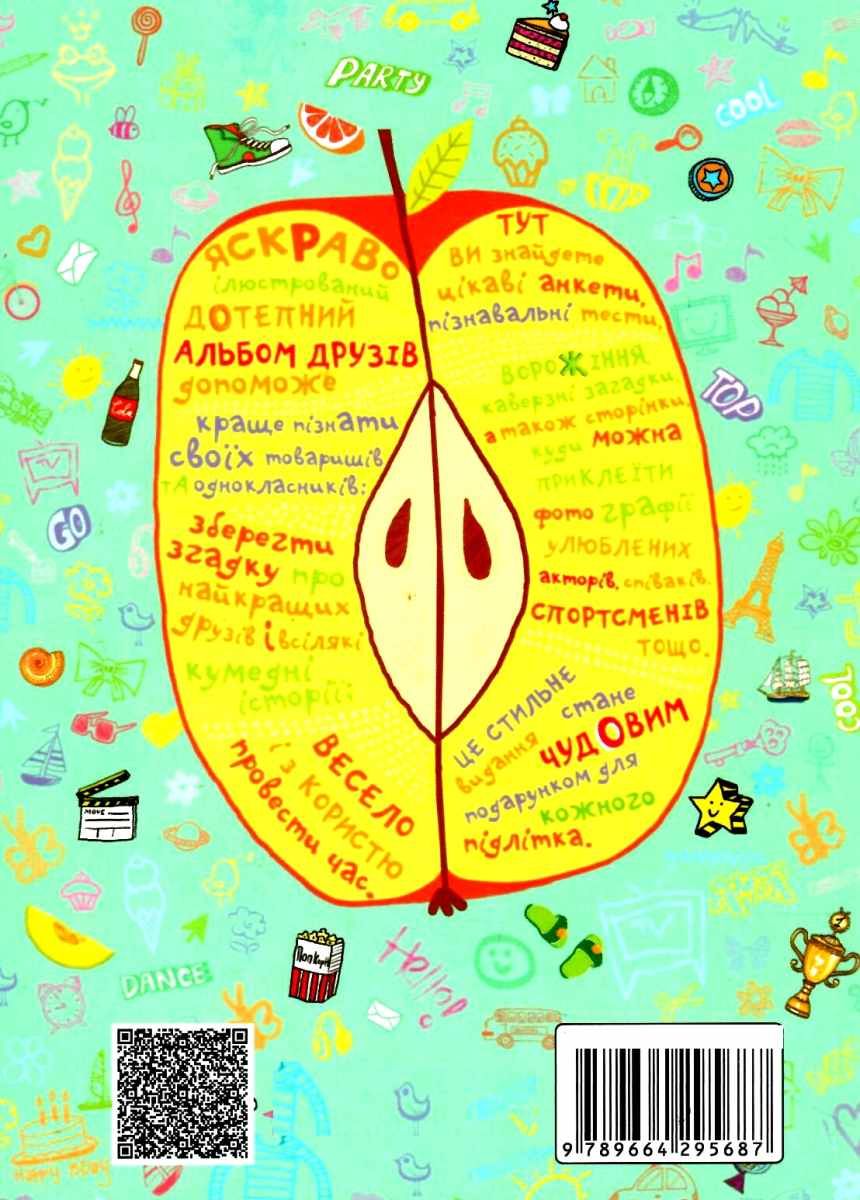 PARTY
COOL
ЯСКРАВО
ілюстрований
ДОТЕПНИЙ
АЛЬБОМ ДРУЗІВ
допоможе
краще пізнати
своїх товаришів
та однокласників;
зберегти
згадку про
найкращих
друзів і всілякі
кумедні
історії;
ВЕСЕЛО
і з користю
провести час.
ТУТ
ви знайдете
цікаві анкети,
пізнавальні тести,
ВОРОЖІННЯ,
каверзні загадки,
а також сторінки,
куди можна
приклеїти
фотографії
улюблених
акторів, співаків,
СПОРТСМЕНІВ
тощо.
ЦЕ СТИЛЬНЕ
видання стане
ЧУДОВИМ
подарунком для
кожного
підлітка.
Cola
TOP
GO
COOL
MOVE
Поп Корн
Hello!
DANCE
HAPPY BDAY
9 789664 295687